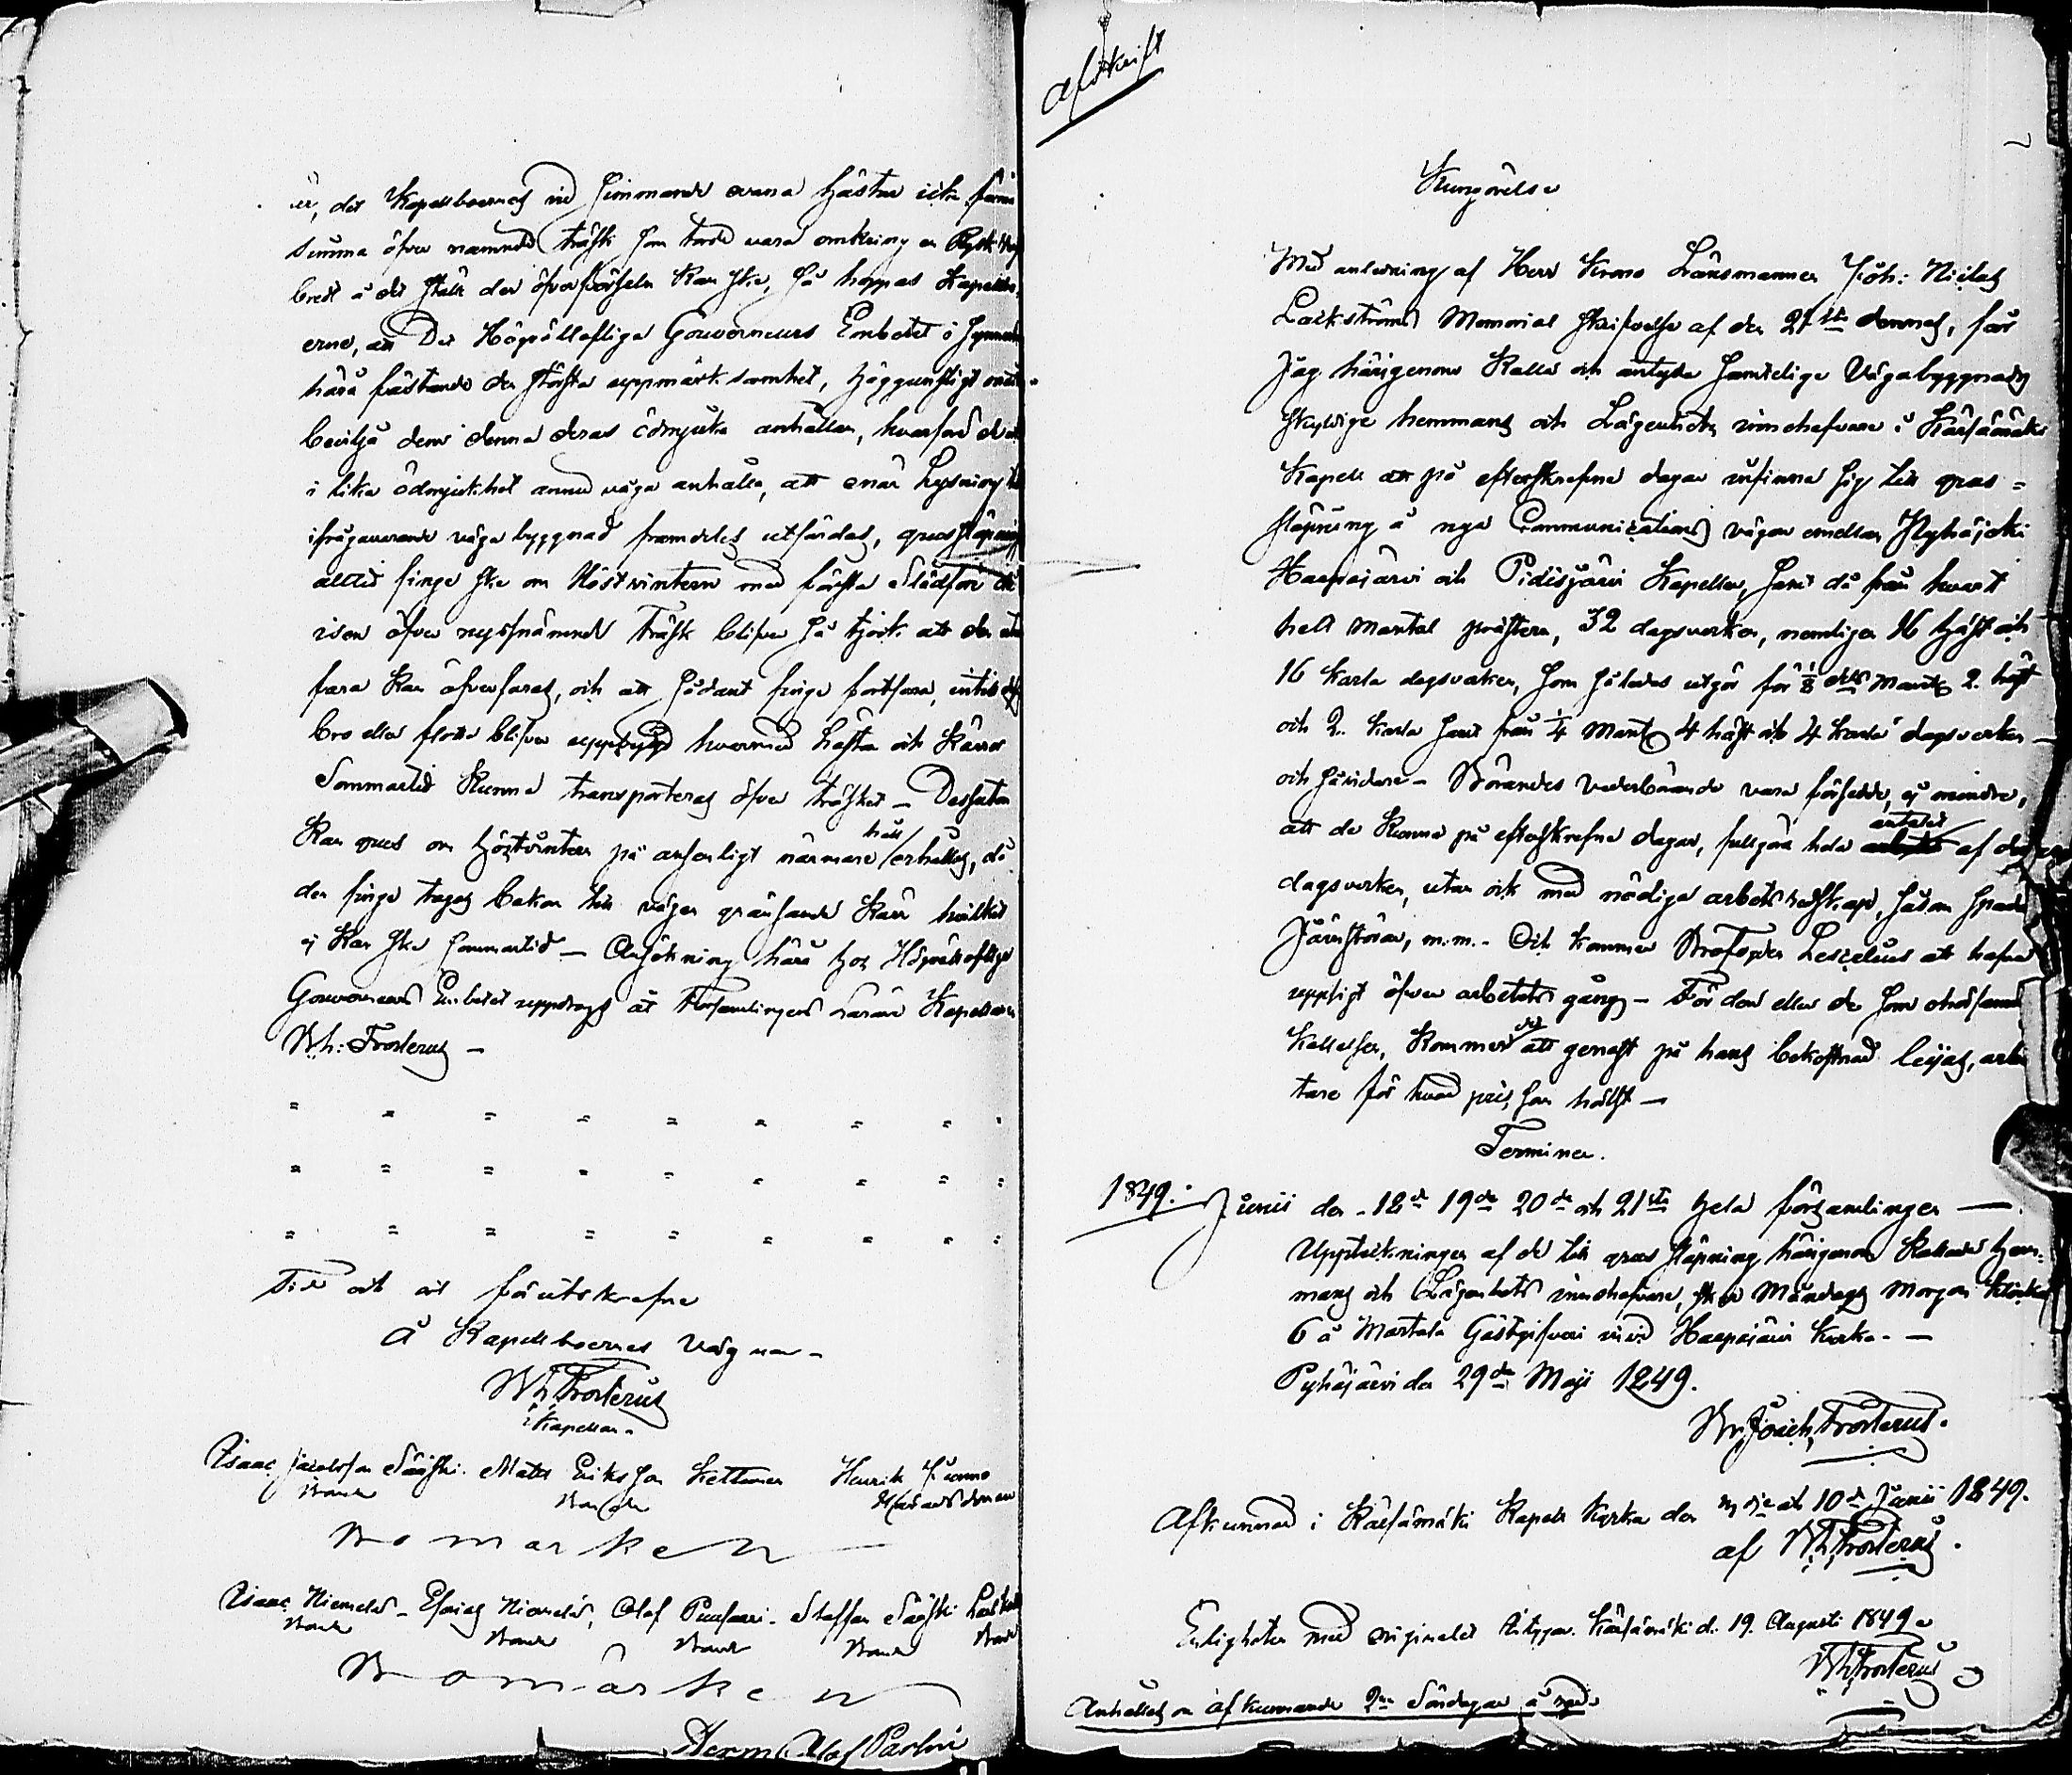 är, det Kapellboernes vid simmande ovana hästar icke
simma öfver nämnde träsk som torde vara omkring en Rysk
bredt å det ställe der öfverförseln kan ske, så hoppas Kapellbo-
erne, att Det Högvällofliga Gouverneurs Embetet i
härå fästande den största uppmärksamhet, höggunstigt
bevilja dem denna deras ödmjuka anhållan, hvarförutan
i lika ödmjukhet ännu våga anhålla, att enär Lysning till
ifrågavarande väga byggnad framdeles utfärdas, grussläpning
alltid finge ske om Höstvintern med första Slädföre då
isen öfver nyssnämnde Träsk blifver så tjock att den utan
fara kan öfverfaras, och att sådant finge fortfara, intill
bro eller flotta blifver uppbygd hvarmed hästar och Kärror
Sommartid kunna transporteras öfver träsket – Dessutom
kan grus om höstvintern på ansenligt närmare håll erhållas, då
den finge tagas bakom till vägen gränsande Kärr hvilket
ej kan ske sommartid – Ansökning härå hos Högvälloflige
Gouverneurs Embetet uppdrogs åt Församlingens Lärare Kapellanen
Wh: Frosterus –
" " " " " " " " "
" " " " " " " " "
" " " " " " " " "
Tid och ort förutskrefne
Å Kapellboernes vägnar –
Wh: Frosterus
Kapellan.
Isaac Jacobsson Säiski. Matts Eriksson Kettunen Henrik Junno
Bonde Bonde Häradsdomare
Bomärken
Isaac Niemelä – Esaias Niemelä, Olof Punsari – Staffan Säiski
Bonde Bonde Bonde Bonde Bonde
Bomärken
Herm: Olof Parlin
Afskrift
Kungörelse
Med anledning af Herr Krono Länsmannen Joh: Niclas
Lackströms Memorial skrifvelse af den 21sta dennes, får
jag härigenom kalla och antyda samtelige Vägabyggnads
skyldige hemmans och Lägenheters innehafvare i Kärsämäki
Kapell att på efterskrefne dagar infinna sig till grus =
släpning å nya Communications vägen emellan Pyhäjoki
Haapajärvi och Pidisjärvi Kapeller, samt då från hvart
helt mantal prästera, 32 dagsverken, nemligen 16 häst och
16 karla dagsverken, som således utgör för 1/8 dels Mantl 2. häst
och 2. karla samt från 1/4 Mantl 4 häst och 4 karla dagsverken –
och såvidare – Börandes vederbörande vara försedde, ej mindre,
att de kunna på efterskrefne dagar, fullgöra hela antalet af dessa
dagsverken, utan ock med nödiga arbets redskap, såsom spadar
järnstörar, m.m. – Och kommer Brofogden Lescelius att hafva
uppsigt öfver arbetets gång – För den eller de som ohörsamma
kallelsen, kommer det att genast på hans bekostnad leijas, arbe
tare för hvad pris som hälst –
Terminer.
1849. Junii den 18de 19de 20de och 21sta hela församlingen –
Uppteckningen af de till grus släpning härigenom kallade hem-
mans och Lägenhets innehafvare, sker Måndags morgon klockan
6 å Martala Gästgifveri invid Haapajärvi Kyrka. –
Pyhäjärvi den 29de Maji 1849.
Frosterus.
Afkunnad i Kärsämäki Kapell Kyrka den 3dje och 10de Junii 1849.
af Wh: Frosterus.
Enligheten med originalet intygar. Kärsämäki d. 19. Augusti 1849
Wh: Frosterus
Anhålles om afkunnande 2ne Söndagar å